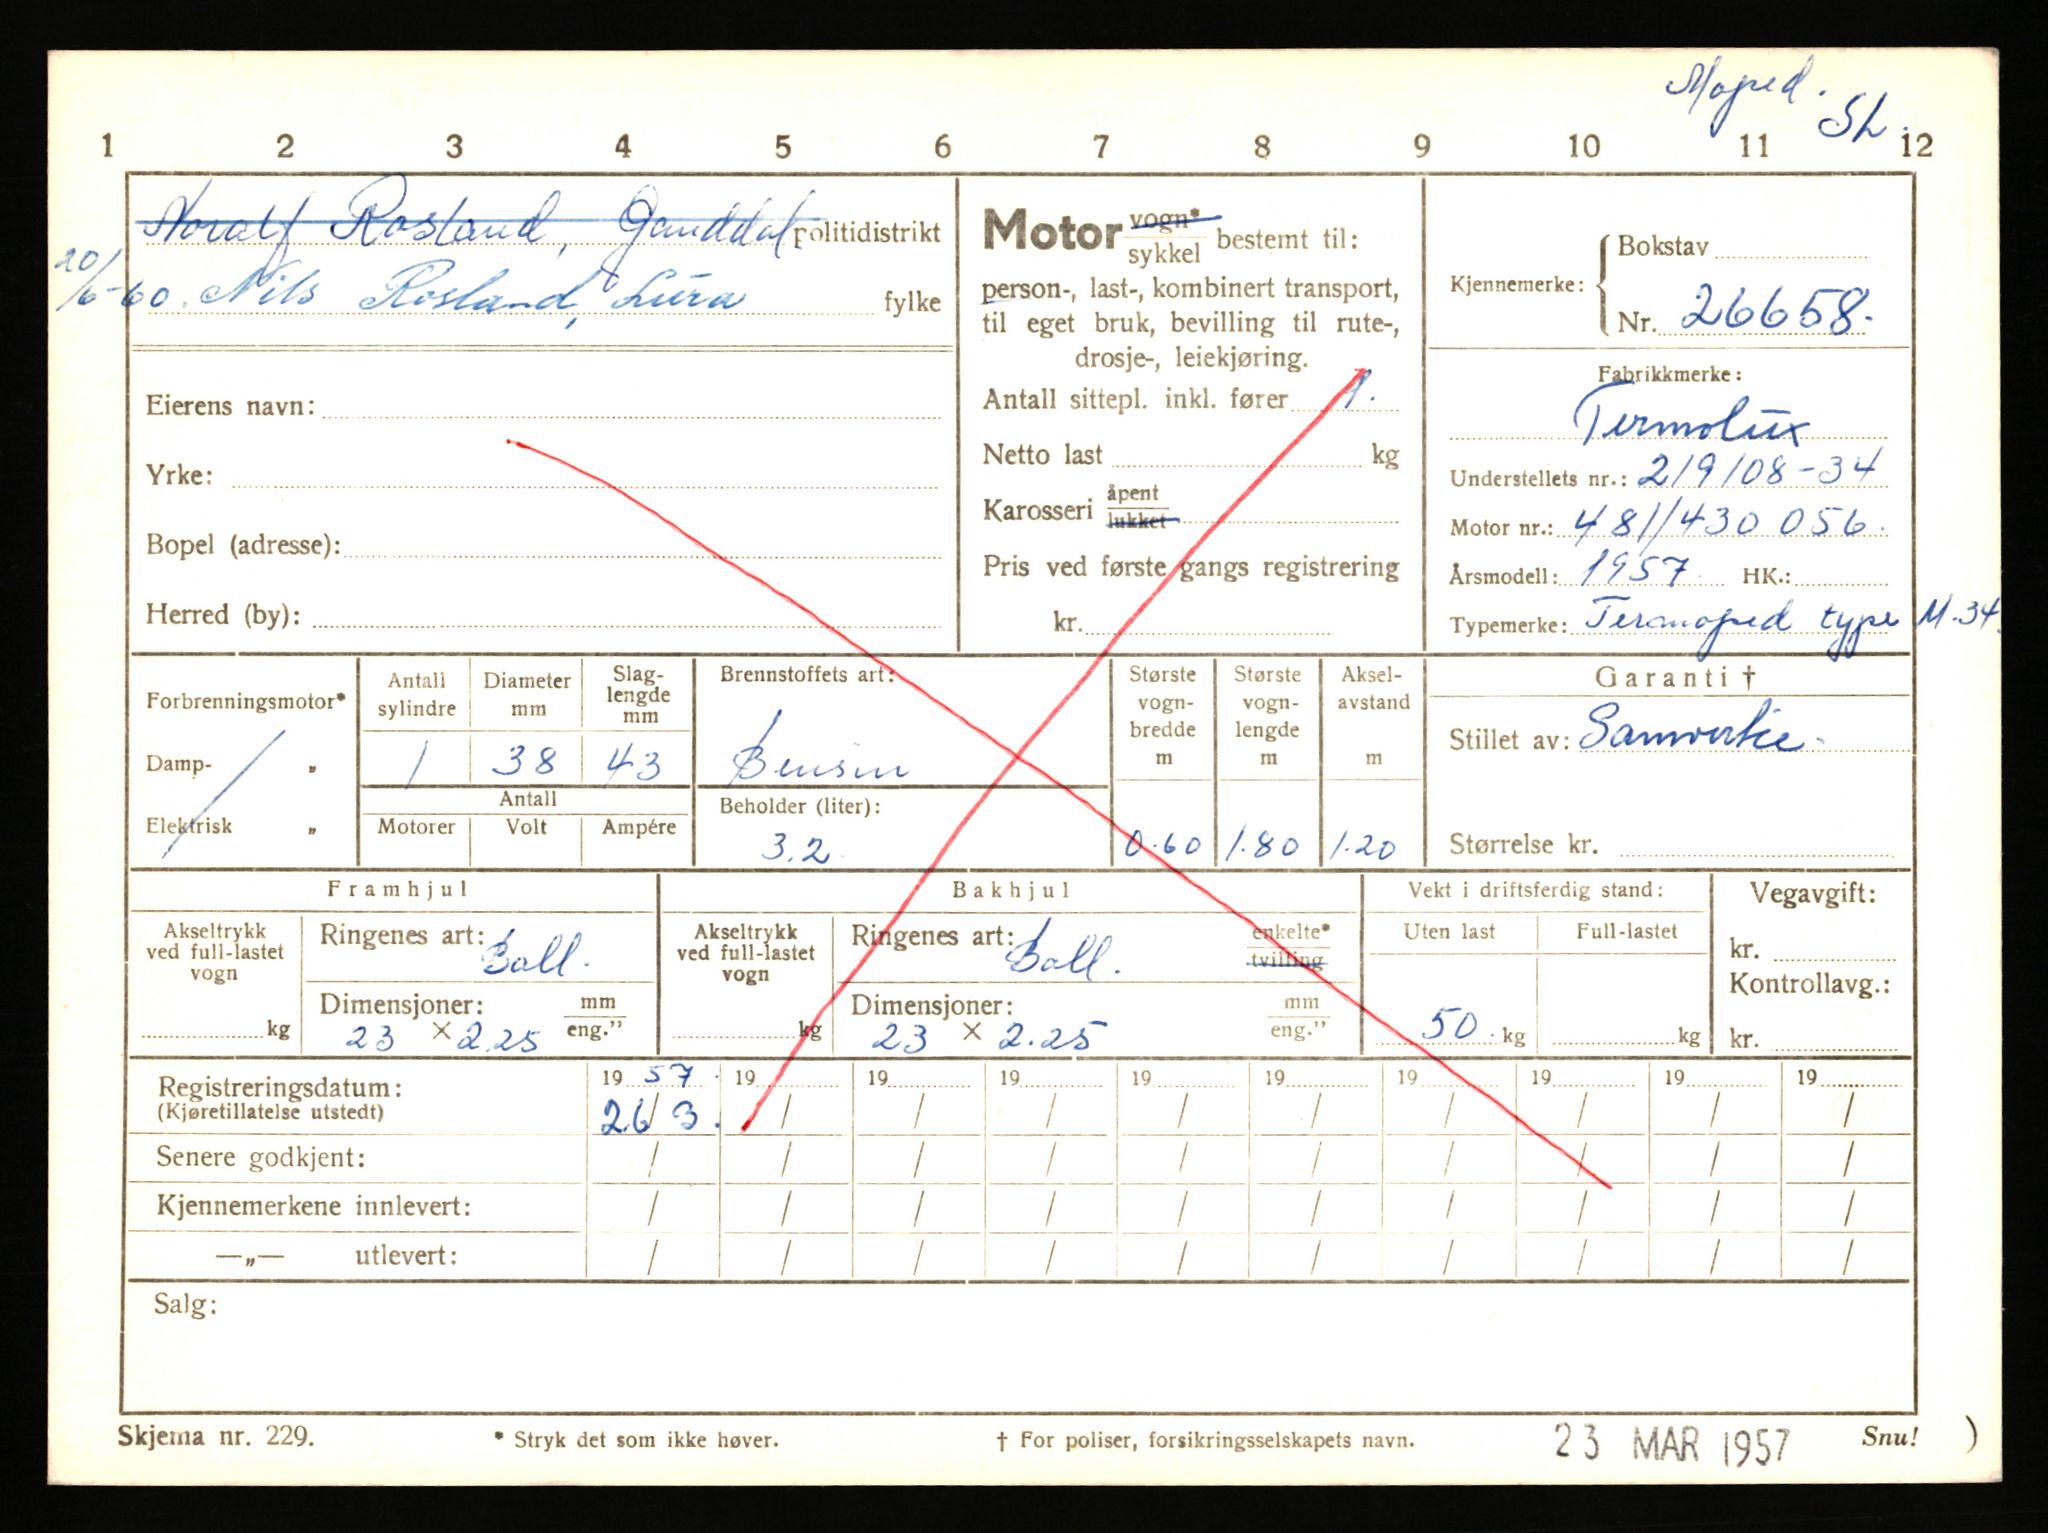 Moped.
SL.
1 2 3 4 5 6 7 8 9 10 11 12
Noralf Rosland, Ganddal politidistrikt
20/6-60. Nils Rosland, Lura fylke
Eierens navn:
Yrke:
Bopel (adresse):
Herred (by):
Motor vogn* sykkel bestemt til:
person-, last-, kombinert transport,
til eget bruk, bevilling til rute-,
drosje-, leiekjøring.
Antall sittepl. inkl. fører 1.
Netto last kg
Karosseri åpent lukket
Pris ved første gangs registrering
kr.
Kjennemerke: Bokstav
Nr. 26658.
Fabrikkmerke:
Termolux
Understellets nr.: 219108-34
Motor nr.: 481/430056.
Årsmodell: 1957 HK.:
Typemerke: Termoped type M.34.
Forbrenningsmotor*
Damp- „
Elektrisk „
Antall sylindre
1
Diameter mm
38
Slaglengde mm
43
Antall
Motorer Volt Ampére
Brennstoffets art:
Bensin
Beholder (liter):
3.2
Største vognbredde m
0.60
Største vognlengde m
1.80
Akselavstand m
1.20
Garanti †
Stillet av: Samvirke.
Størrelse kr.
Framhjul
Akseltrykk
ved full-lastet
vogn
kg
Ringenes art: Ball.
Dimensjoner: mm
23 × 2.25 eng."
Bakhjul
Akseltrykk
ved full-lastet
vogn
kg
Ringenes art: Ball. enkelte* tvilling
Dimensjoner: mm
23 × 2.25 eng."
Vekt i driftsferdig stand:
Uten last Full-lastet
50 kg kg
Vegavgift:
kr.
Kontrollavg.:
kr.
Registreringsdatum: 19 57. 19 19 19 19 19 19 19 19 19
(Kjøretillatelse utstedt) 26/3. / / / / / / / / /
Senere godkjent: / / / / / / / / / /
Kjennemerkene innlevert: / / / / / / / / / /
—„— utlevert: / / / / / / / / / /
Salg:
Skjema nr. 229. * Stryk det som ikke høver. † For poliser, forsikringsselskapets navn. 23 MAR 1957 Snu! )